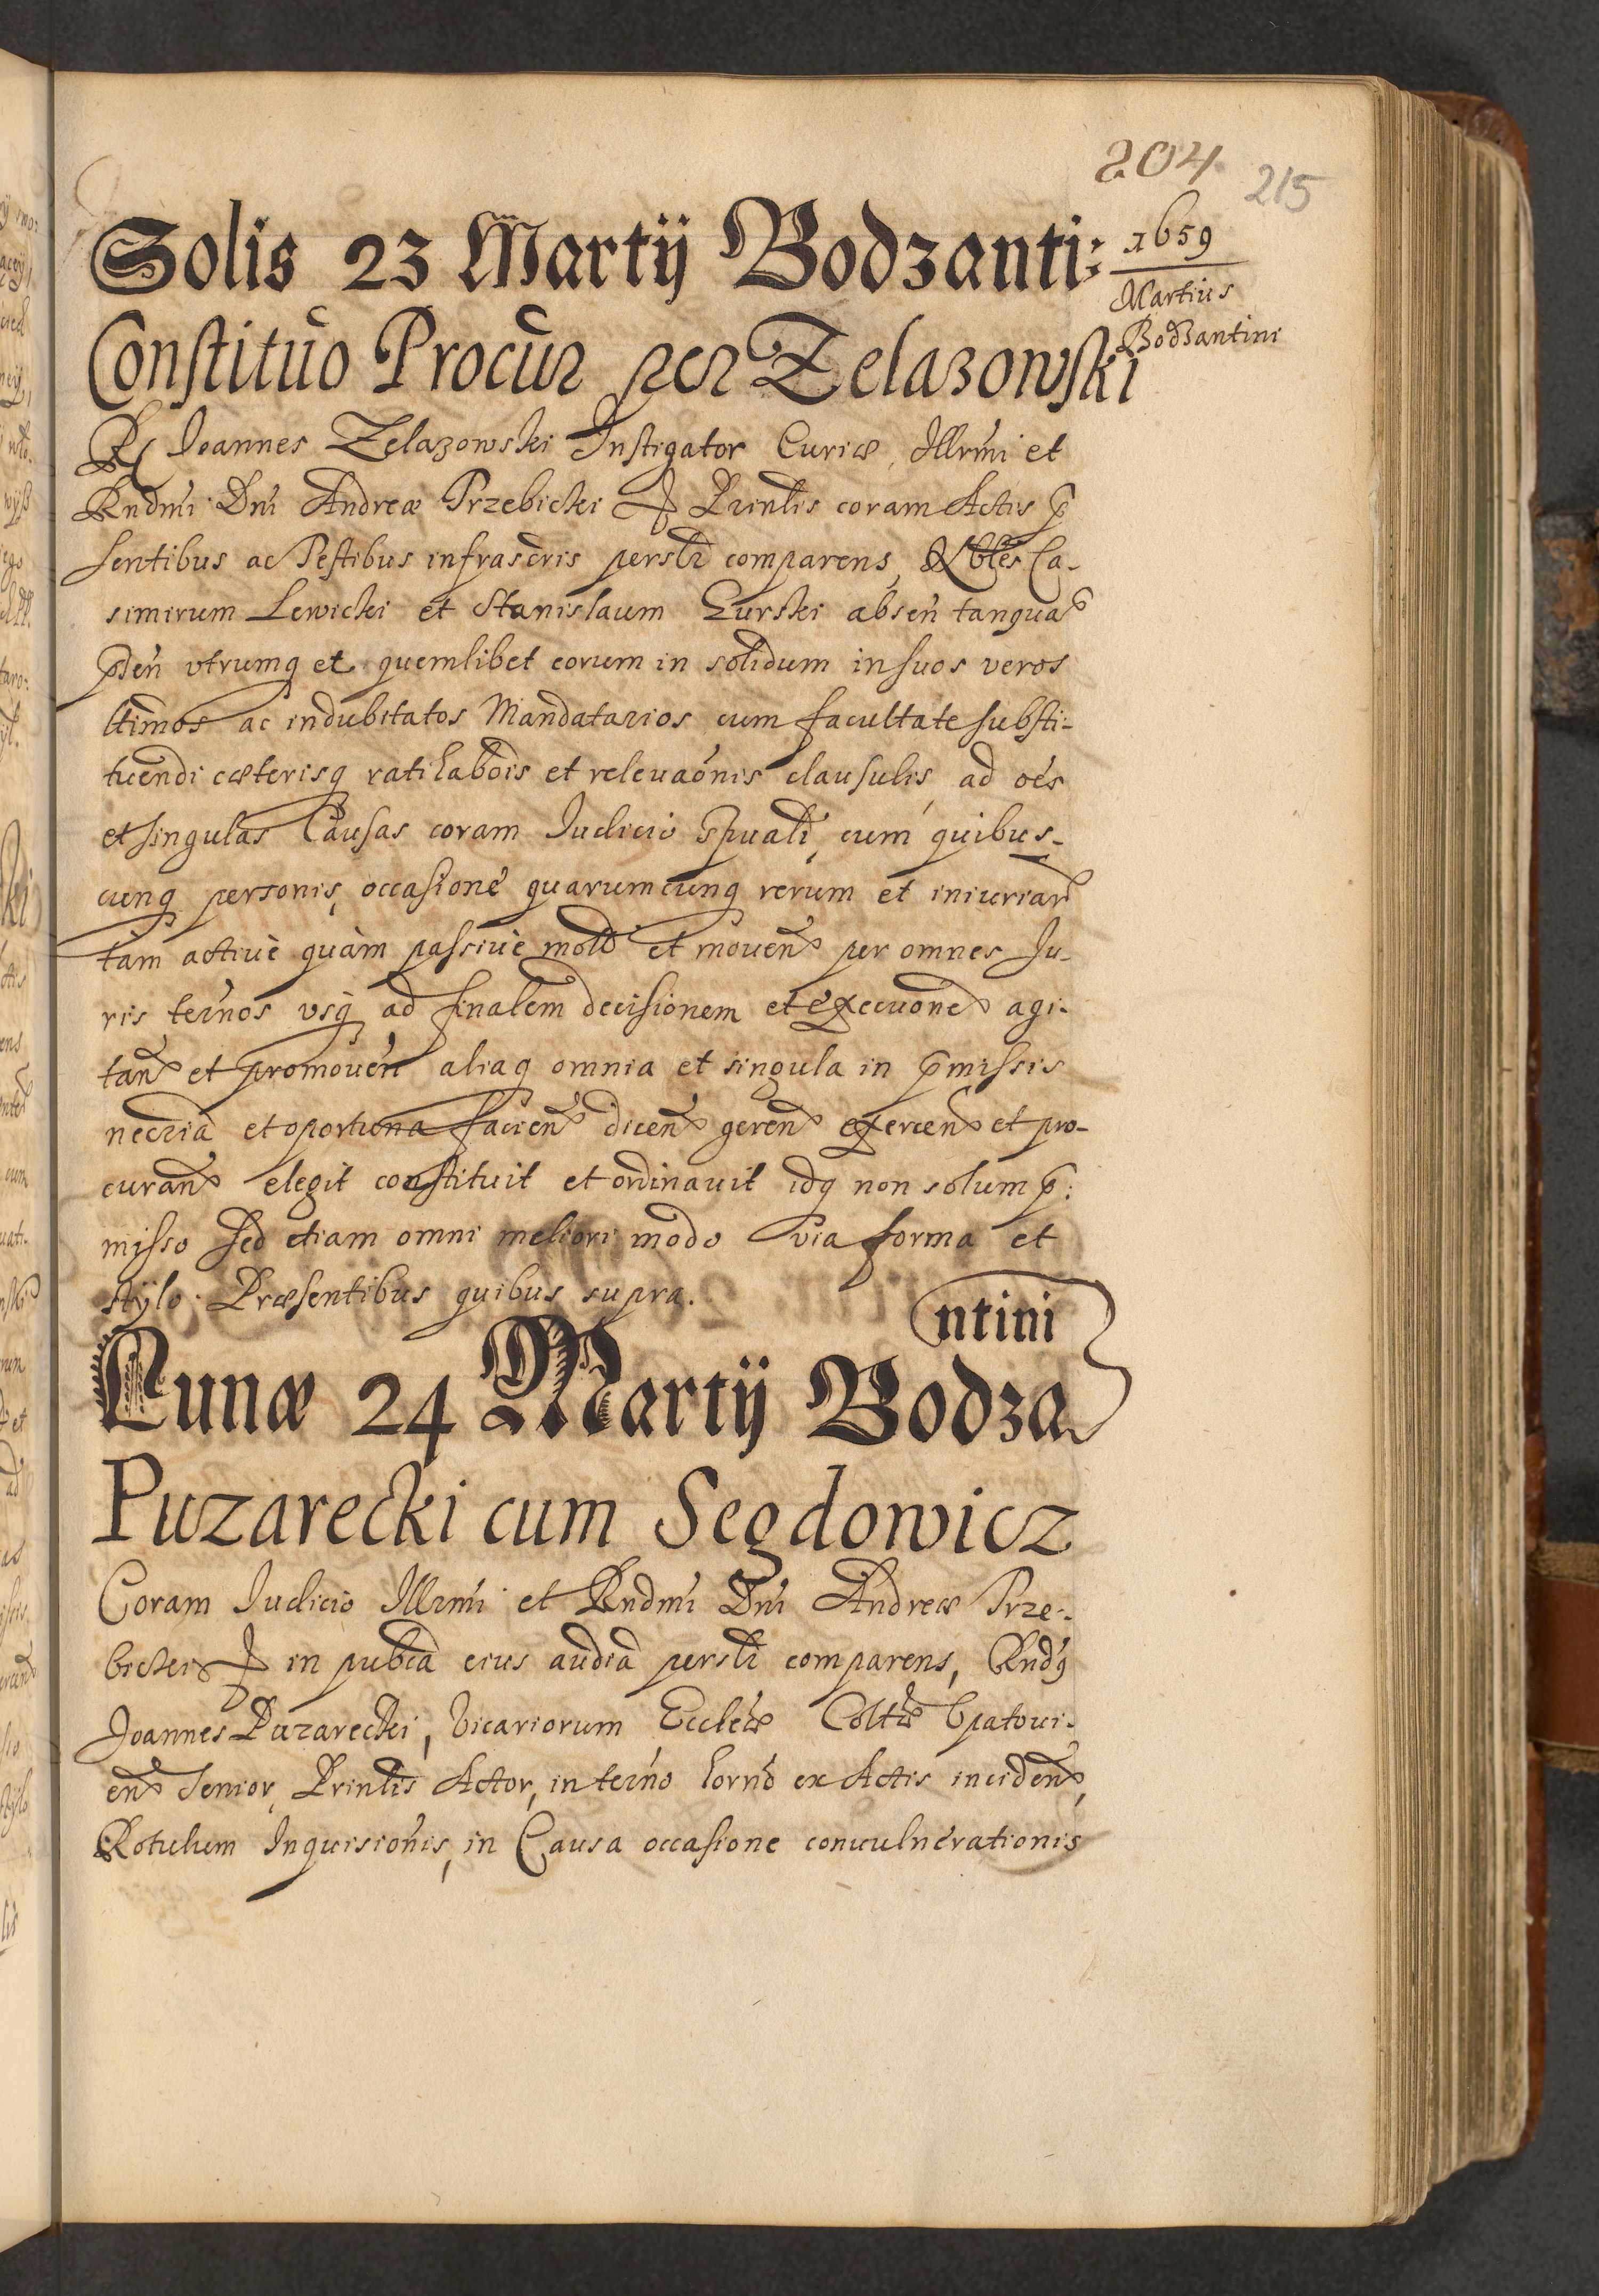 204
215
1659
Martius
Bodzantini
Solis 23 Martij Bodzanti:
Constituo Procur per Zelazowski
Joannes Zelazowski Instigator Curiæ Illrmi et
Rndmi Dni Andreæ Przebicki Printis coram Actis p̄
sentibus ac Testibus infrascris persli comparens, Nbles Ca-
simirum Lewicki et Stanislaum Gurski absen̄ tanqua
p̄sen̄ vtrumq et quemlibet eorum in solidum in suos veros
ltimos ac indubitatos Mandatarios cum facultate substi-
tuendi cæterisq ratihabōis et releuaōnis clausulis ad oēs
et singulas Causas coram Judicio Spuali, cum quibus-
cunq personis, occasione quarumcunq rerum et iniuriar
tam actiuè quàm passiuè mot et mouen per omnes Ju-
ris ternos vsq ad finalem decisionem et execuōne agi-
tan et promouen aliaq omnia et singula in p̄missis
necria et oportuna facien dicen geren exercen et pro-
curan elegit constituit et ordinauit idq non solum p̄:
misso sed etiam omni meliori modo via forma et
stylo. Præsentibus quibus supra.
ntini
Lunæ 24 Martij Bodza
Puzarecki cum Segdowicz
Coram Judicio Illrmi et Rndmi Dni Andreæ Prze-
bicki in pubca eius audia persli comparens, Rndq
Joannes Puzarecki, Vicariorum Eccleæ Coltæ Opatoui-
en Senior, Printis Actor, in terno horno ex Actis inciden,
Rotulum Inquisionis, in Causa occasione conuulnerationis